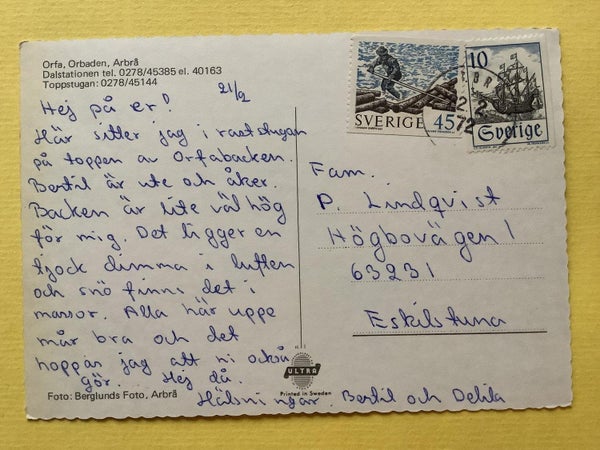 Orfa, Orbaden, Arbrå
Dalstationen tel. 0278/45385 el. 40163
Toppstugan: 0278/45144
21/2
Hej på er!
Här sitter jag i raststugan
på toppen av Orfabacken.
Bertil är ute och åker.
Backen är lite väl hög
för mig. Det ligger en
tjock dimma i luften
och snö finns det i
massor. Alla här uppe
mår bra och det
hoppas jag att ni också
gör. Hej då.
Hälsningar. Bertil och Delila
Foto: Berglunds Foto, Arbrå
ULTRA
Printed in Sweden
SVERIGE 45
10
Sverige
72
Fam.
P. Lindqvist
Högbovägen 1
63231
Eskilstuna